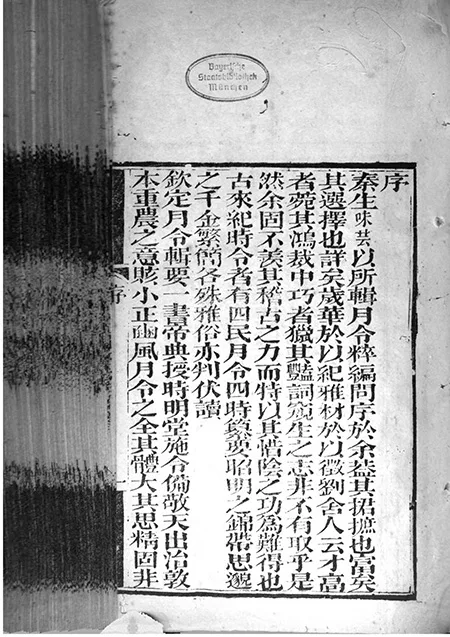 Bayerische
Staatsbibliothek
München
序
秦生味芸以所輯月令粹編問序於余蓋其捃摭也富矣
其選擇也詳矣歲華於以紀雅材於以徵劉舍人云才高
者菀其鴻裁中巧者獵其豔詞秦生之志非不有取乎是
然余固不羨其稽古之力而特以其惜陰之功為難得也
古來紀時令者有四民月令四時纂要昭明之錦帶思邈
之千金繁簡各殊雅俗亦判伏讀
欽定月令輯要一書帝典授時明堂施令備敬天出治敦
本重農之意賅小正豳風月令之全其體大其思精固非
序
一